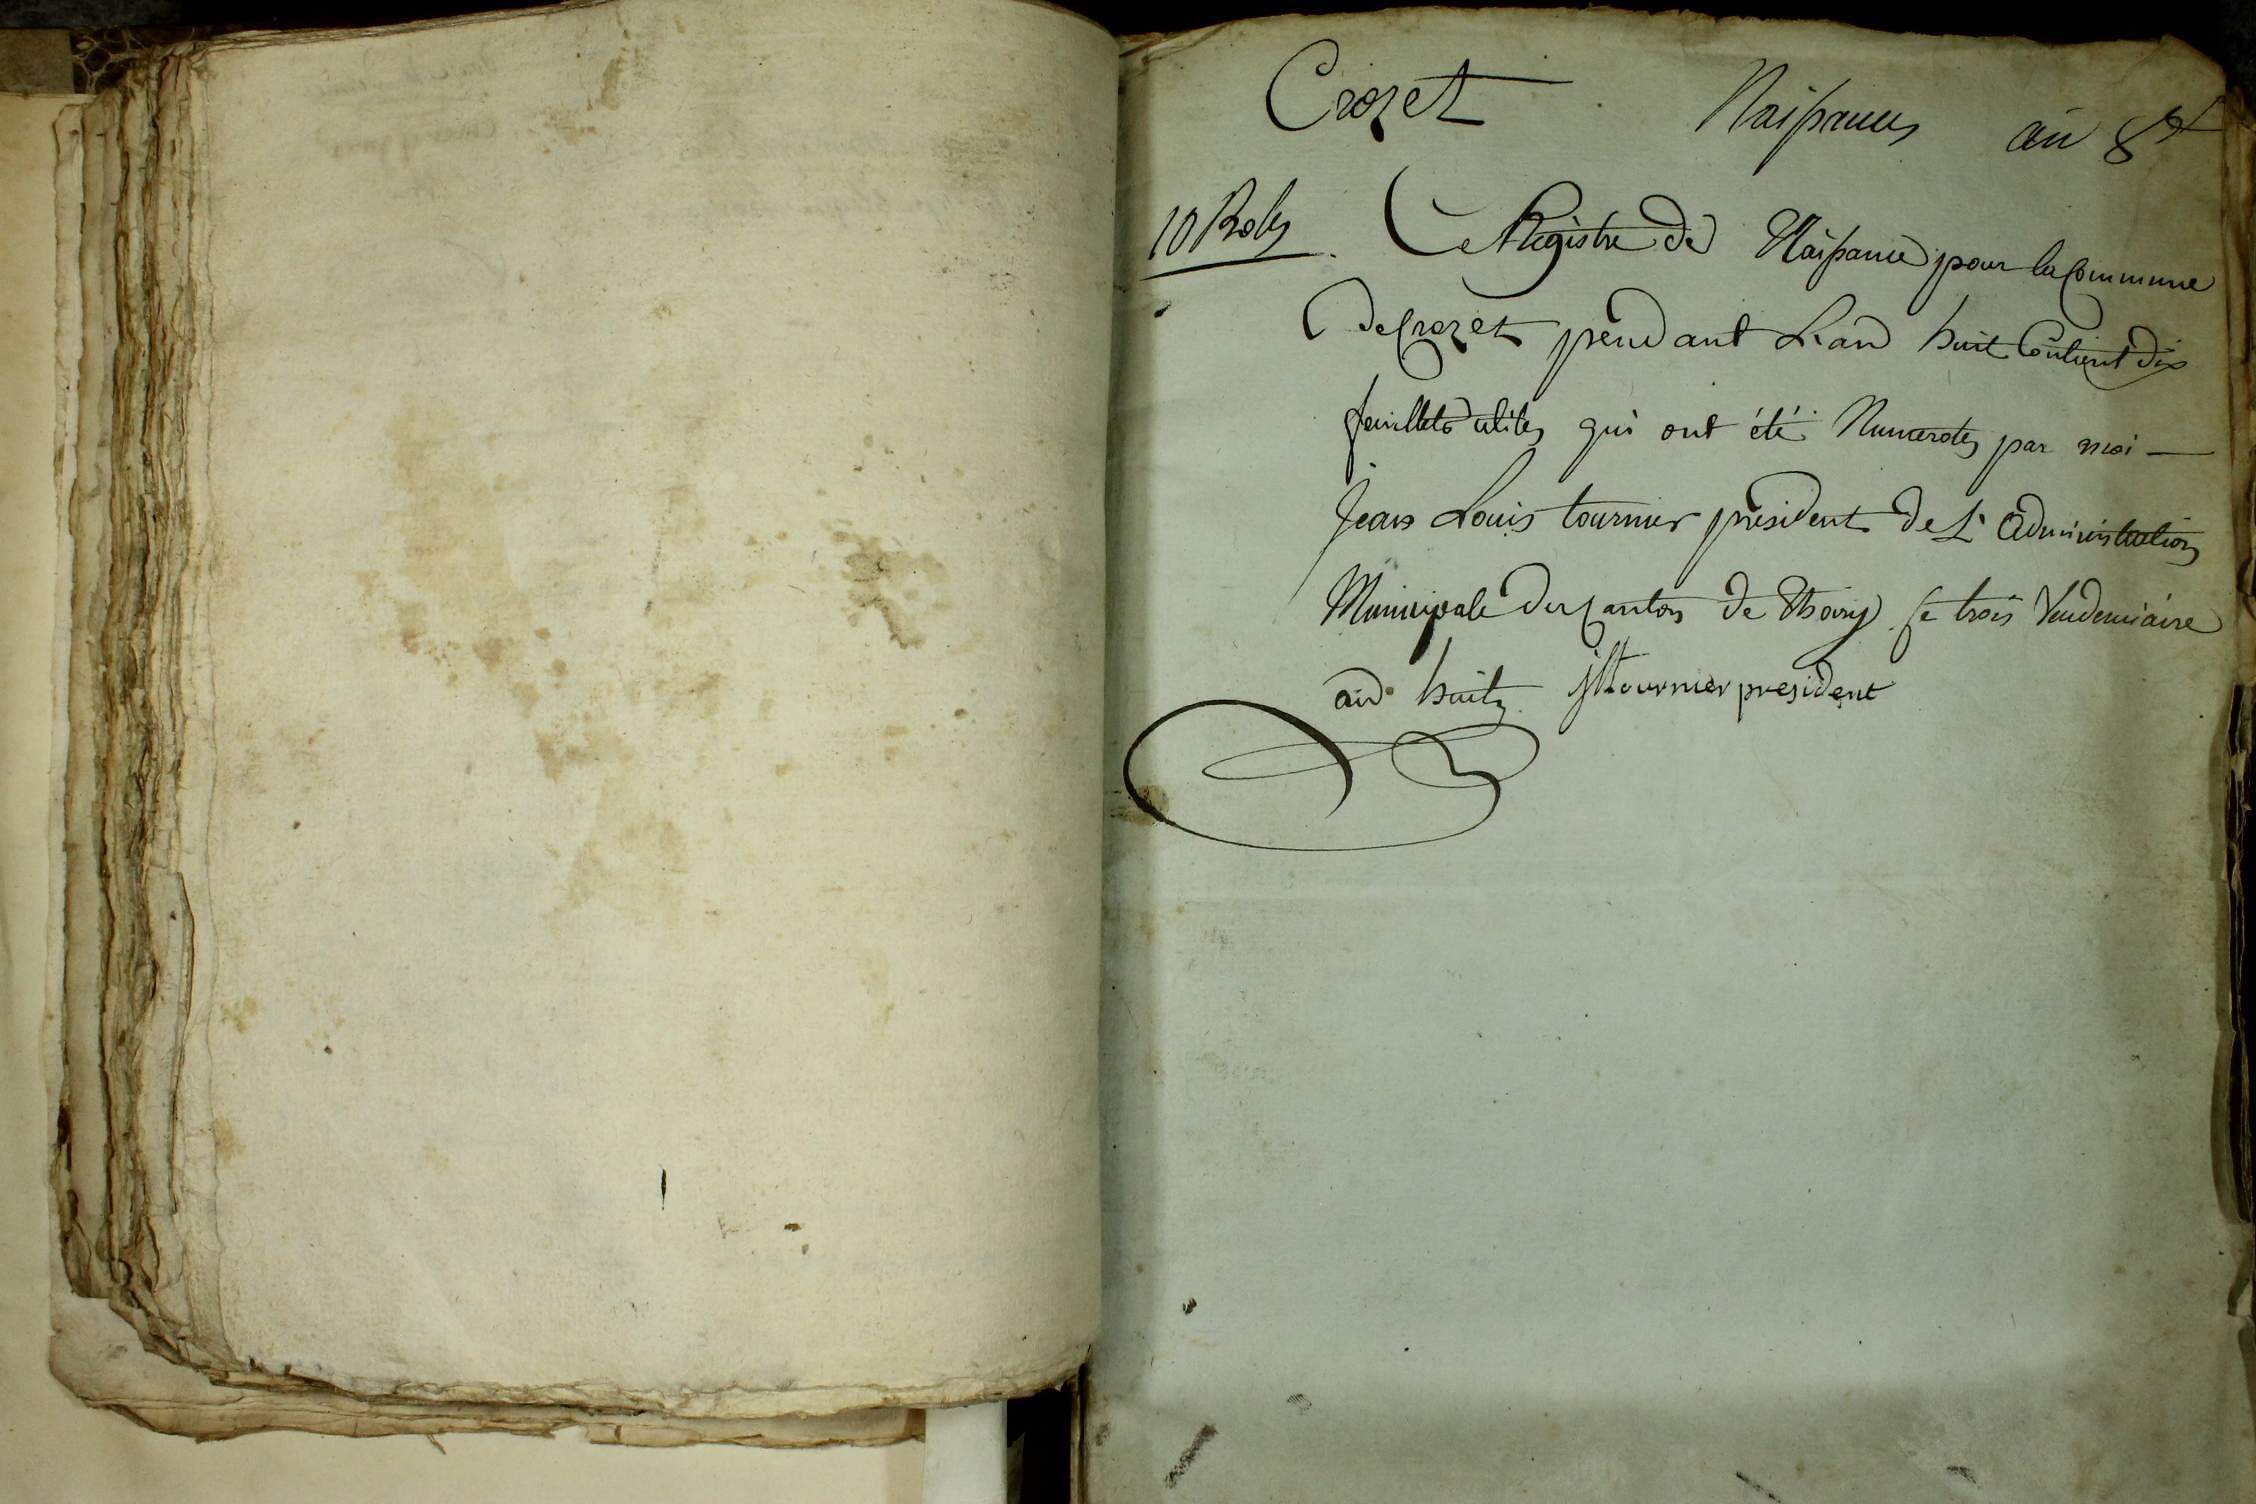 Crozet Naissances an 8e
10 Roles
Ce Registre de Naissance pour la Commune
de Crozet pendant L'an huit Contient dix
feuillets utiles qui ont été Numerotés par moi —
Jean Louis tournier président de L'Administration
Municipale du Canton de Thoiry le trois Vendemiaire
an huit jltournier president